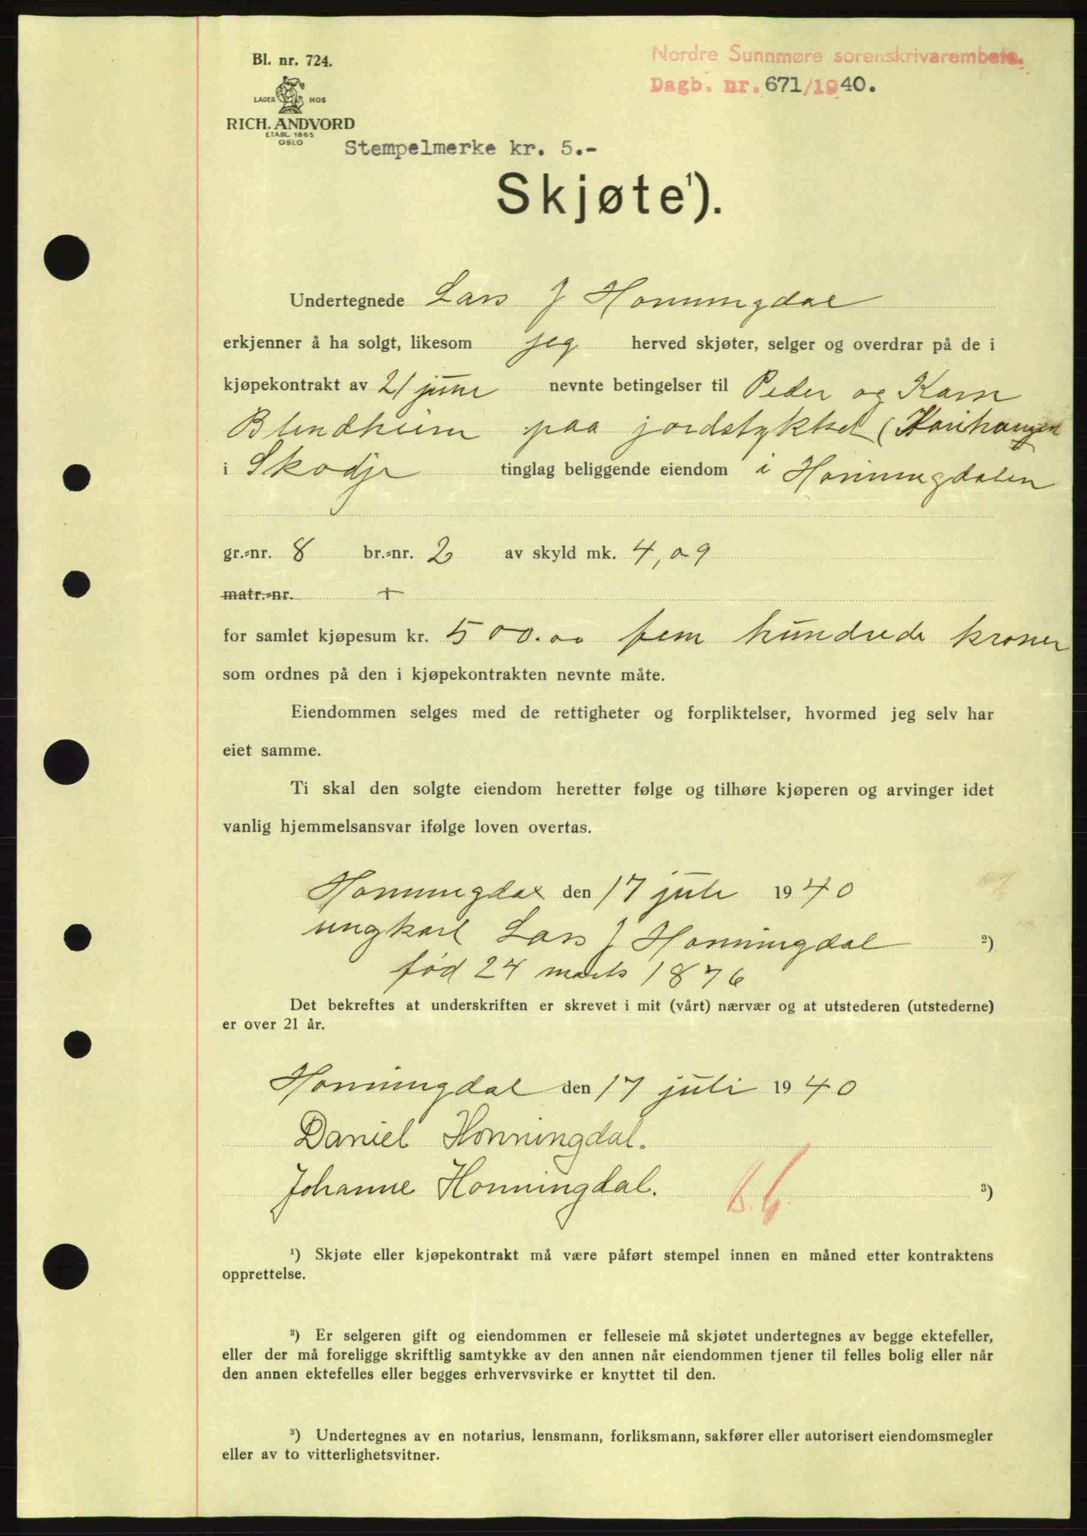 Bl. nr. 724.
LAGER HOS
RICH. ANDVORD
ETABL. 1865
OSLO
Nordre Sunnmøre sorenskrivarembete.
Dagb. nr. 671/1940.
Stempelmerke kr. 5.-
Skjøte¹).
Undertegnede Lars J Honningdal
erkjenner å ha solgt, likesom jeg herved skjøter, selger og overdrar på de i
kjøpekontrakt av 21 juni nevnte betingelser til Peder og Karn
Blindheim paa jordstykket (
i Skodje tinglag beliggende eiendom i Honningdalen
gr.-nr. 8 br.-nr. 2 av skyld mk. 4,09
matr.-nr. +
for samlet kjøpesum kr. 500.00 fem hundrede kroner
som ordnes på den i kjøpekontrakten nevnte måte.
Eiendommen selges med de rettigheter og forpliktelser, hvormed jeg selv har
eiet samme.
Ti skal den solgte eiendom heretter følge og tilhøre kjøperen og arvinger idet
vanlig hjemmelsansvar ifølge loven overtas.
Honningdal den 17 juli 1940
ungkarl Lars J Honningdal ²)
fød 24 marts 1876
Det bekreftes at underskriften er skrevet i mit (vårt) nærvær og at utstederen (utstederne)
er over 21 år.
Honningdal den 17 juli 1940
Daniel Honningdal.
Johanne Honningdal. ³)
¹) Skjøte eller kjøpekontrakt må være påført stempel innen en måned etter kontraktens
opprettelse.
²) Er selgeren gift og eiendommen er felleseie må skjøtet undertegnes av begge ektefeller,
eller der må foreligge skriftlig samtykke av den annen når eiendommen tjener til felles bolig eller når
den annen ektefelles eller begges erhvervsvirke er knyttet til den.
³) Undertegnes av en notarius, lensmann, forliksmann, sakfører eller autorisert eiendomsmegler
eller av to vitterlighetsvitner.